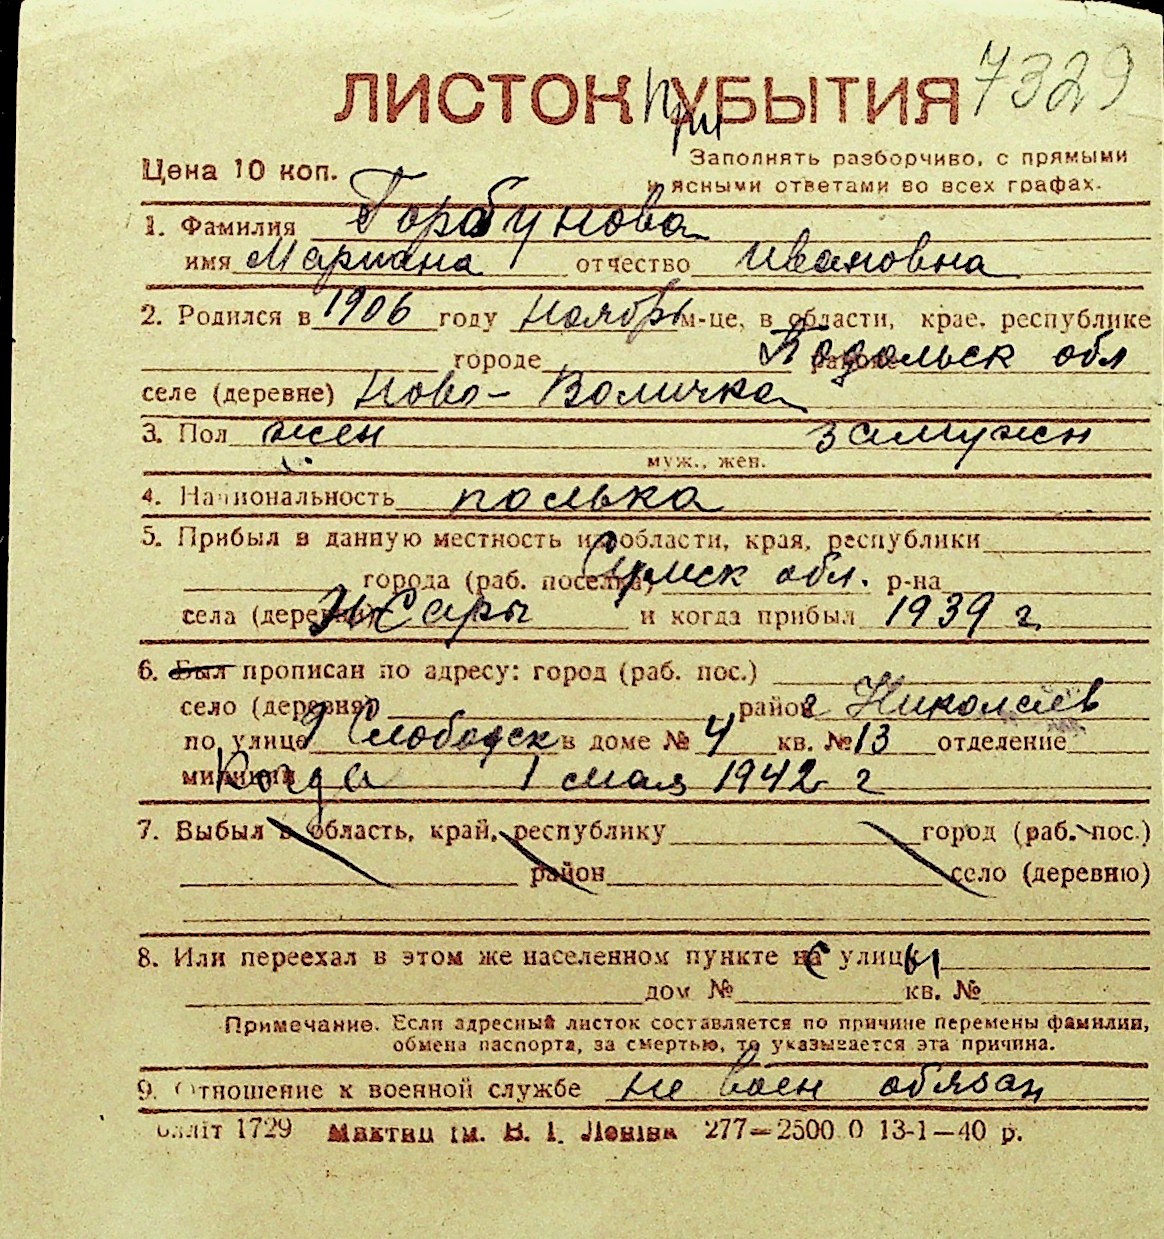 ЛИСТОК при УБЫТИЯ 7329
Цена 10 коп.
Заполнять разборчиво, с прямыми
и ясными ответами во всех графах.
1. Фамилия Горбунова
имя Марияна отчество Ивановна
2. Родился в 1906 году Ноябрь м-це, в области, крае, республике
городе районе Подольск обл
селе (деревне) Ново-Воличка
3. Пол жен замужен
муж., жен.
4. Национальность полька
5. Прибыл в данную местность из области, края, республики
города (раб. поселка) Сумск обл. р-на
села (деревни) Н Сары и когда прибыл 1939 г
6. Был прописан по адресу: город (раб. пос.)
село (деревня) район г Николаев
по улице Слободск в доме № 4 кв. № 13 отделение
милиции Когда 1 мая 1942 г
7. Выбыл в область, край, республику город (раб. пос.)
район село (деревню)
8. Или переехал в этом же населенном пункте на с улицы
дом № кв. №
Примечание. Если адресный листок составляется по причине перемены фамилии,
обмена паспорта, за смертью, то указывается эта причина.
9. Отношение к военной службе не воен обязан
1729 ім. В. І. Леніна 277—2500 0 13-1—40 р.